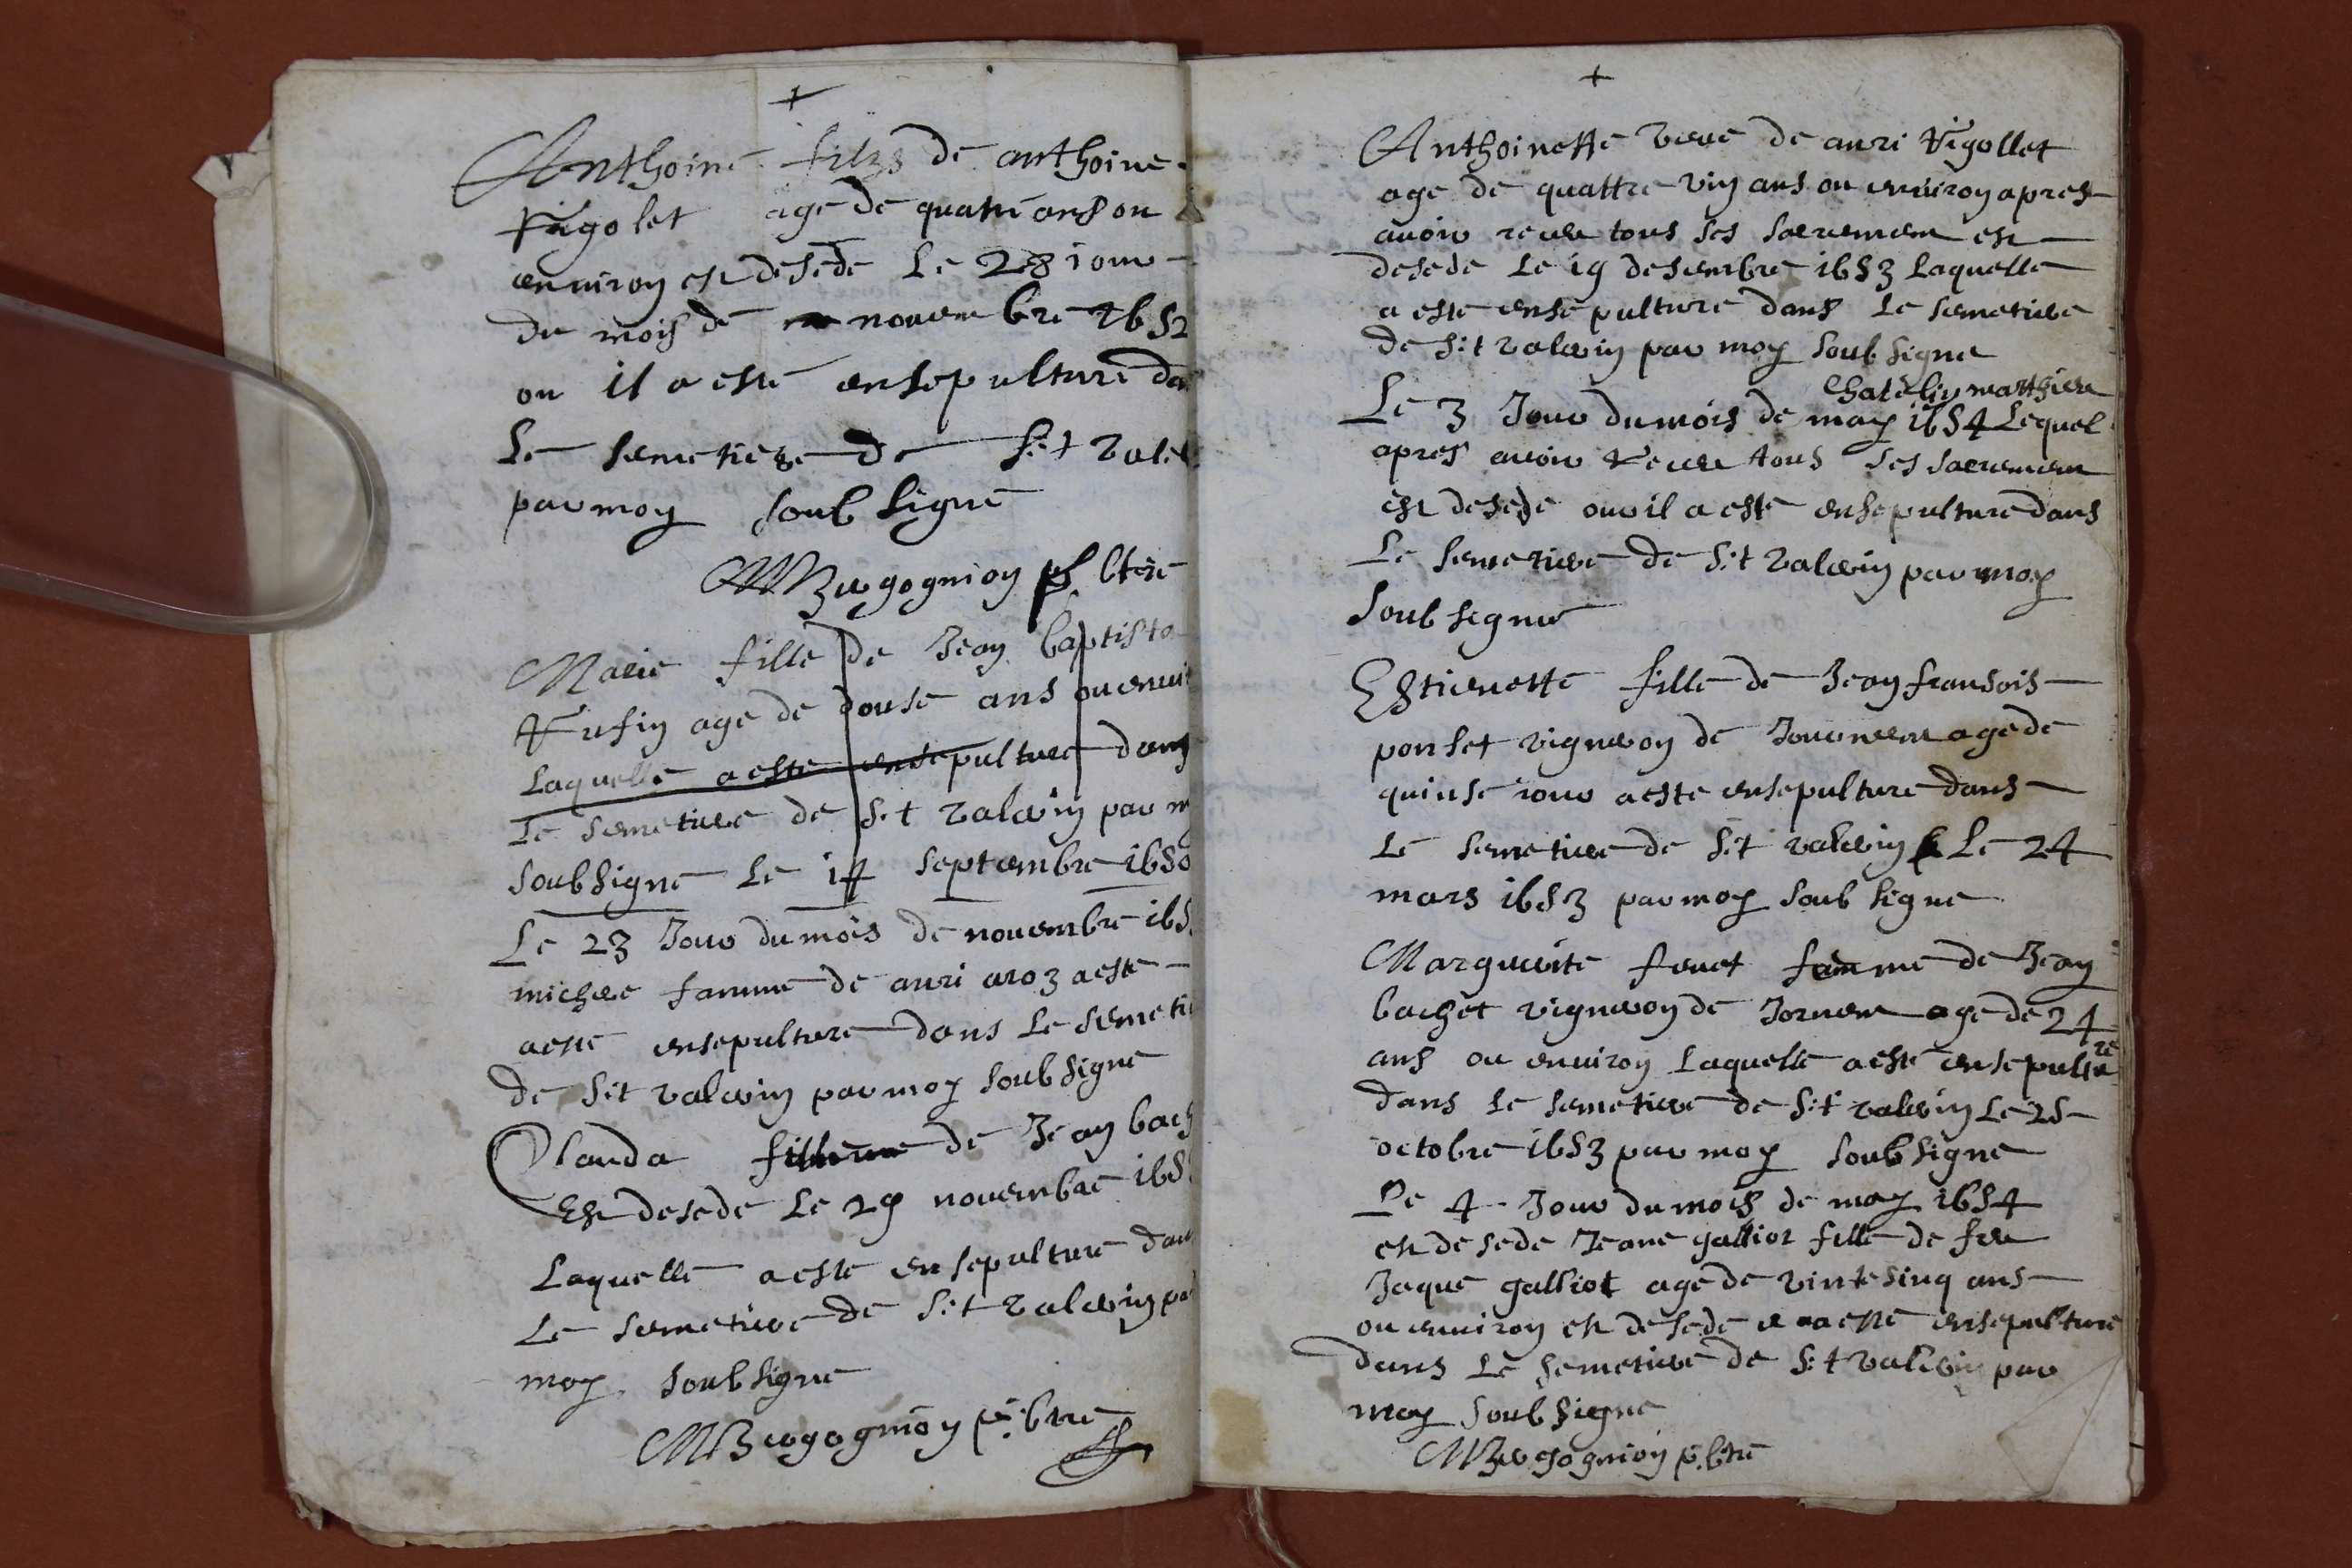 +
Anthoine filzs de anthoine
Rigolet age de quatre ans ou
environ est desede Le 28 iour
du mois de novembre 1652
ou il a esté ensepulturé da
Le semetiere de S:t Vale
par moy soubsigné
MBergognion p.btre
Marie fille de Jean baptista
Rufin age de douse ans ou envi
Laquelle a este ensepulture dans
Le semetiere de S:t Valerin par m
soubsigné Le 14 septembre 1650
Le 23 Jour du mois de novembre 165
michere famme de anri aroz a este
a esté ensepulture dans Le semeti
de S:t Valerin par moy soubsigné
Clauda de Jean bach
Est desede Le 29 novembre 165
Laquelle a este ensepulture dan
Le semetiere de S:t Valerin pa
moy soubsigne
MBergognion p:btre
+
Anthoinette veve de anri Rigollet
age de quattre vin ans ou environ apres
avoir receu tous ses sacremem est
desede Le 19 desembre 1653 Laquelle
a este ensepulture dans Le semetiere
de S:t Valerin par moy soubsigne
Chatelin matthieu
Le 3 Jour du mois de may 1654 Lequel
apres avoir Receu tous ses sacremem
est desede ou il a este ensepulture dans
Le semetiere de S:t Valerin par moy
soubsegner
Estienette fille de Jean fransois
ponset vigneron de Journem age de
quinse iour a este ensepulture dans
Le semetiere de S:t Valerin Le 24
mars 1653 par moy soubsigne
Marguerite fevet famme de Jean
bachet vigneron de Jornem age de 24
ans ou environ Laquelle a este ensepulture
dans Le semetiere de S:t Valerin Le 25
octobre 1653 par moy soubsigne
Le 4 Jour du mois de may 1654
est desede Jeane galliot fille de feu
Jaque galliot age de vinte sinq ans
ou environ est desede e a esté ensepulture
dans Le semetiere de S:t Valerin par
moy soubsigne
MBergognion p.btre